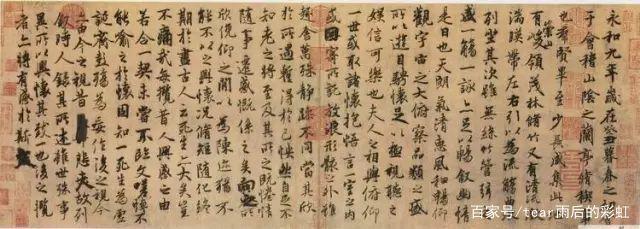 永和九年歲在癸丑暮春之初會
于會稽山陰之蘭亭脩稧事
也羣賢畢至少長咸集此地
有崇山峻領茂林脩竹又有清流激
湍暎帶左右引以為流觴曲水
列坐其次雖無絲竹管弦之
盛一觴一詠亦足以暢敘幽情
是日也天朗氣清惠風和暢仰
觀宇宙之大俯察品類之盛
所以遊目騁懷足以極視聽之
娛信可樂也夫人之相與俯仰
一世或取諸懷抱悟言一室之內
或因寄所託放浪形骸之外雖
趣舍萬殊靜躁不同當其欣
於所遇暫得於己怏然自足不
知老之將至及其所之既惓情
隨事遷感慨係之矣向之所
欣俛仰之閒以為陳迹猶不
能不以之興懷況脩短隨化終
期於盡古人云死生亦大矣豈
不痛哉每攬昔人興感之由
若合一契未嘗不臨文嗟悼不
能喻之於懷固知一死生為虛
誕齊彭殤為妄作後之視今
亦由今之視昔悲夫故列
敘時人錄其所述雖世殊事
異所以興懷其致一也後之攬
者亦將有感於斯文
百家号/tear雨后的彩虹